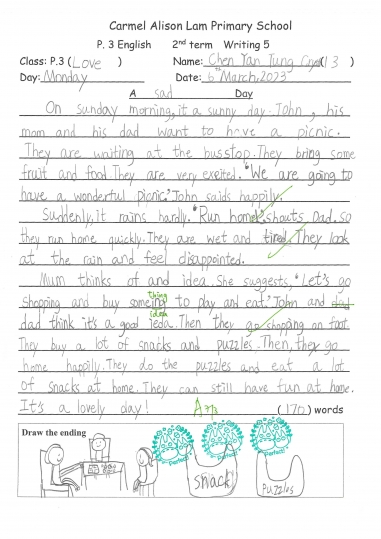 Carmel Alison Lam Primary School
P. 3 English 2nd term Writing 5
Class: P.3 (Love ) Name: Chen Yan Tung (13)
Day: Monday Date: 6th March, 2023
A sad Day
On sunday morning, it a sunny day. John, his
mom and his dad want to have a picnic.
They are waiting at the busstop. They bring some
fruit and food. They are very excited. "We are going to
have a wonderful picnic." John saids happily.
Suddenly, it rains hardly. "Run home!" shouts Dad. So
they run home quickly. They are wet and tired. They look
at the rain and feel disappointed.
Mum thinks of and idea. She suggests, "Let's go
thing
shopping and buy someing to play and eat." John and dad
idea
dad think it's a good ieda. Then they go shopping on foot.
They buy a lot of snacks and puzzles. Then, they go
home happily. They do the puzzles and eat a lot
of snacks at home. They can still have fun at home.
It's a lovely day! (170) words
Draw the ending
Perfect!
Perfect!
Perfect!
snack
Puzzles